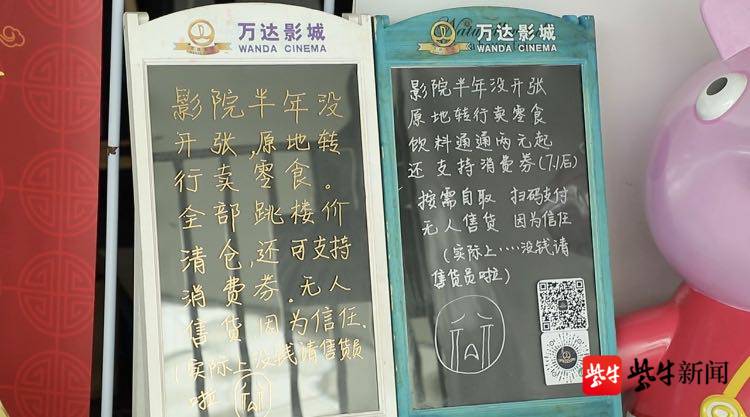 万达影城
WANDA CINEMA
影院半年没
开张,原地转
行卖零食。
全部跳楼价
清仓,还可支持
消费券。无人
售货因为信任.
(实际上没钱请售货员
啦)
万达影城
WANDA CINEMA
影院半年没开张
原地转行卖零食
饮料通通两元起
还支持消费券(7.1后)
按需自取 扫码支付
无人售货 因为信任
(实际上····没钱请
售货员啦)
紫牛 紫牛新闻